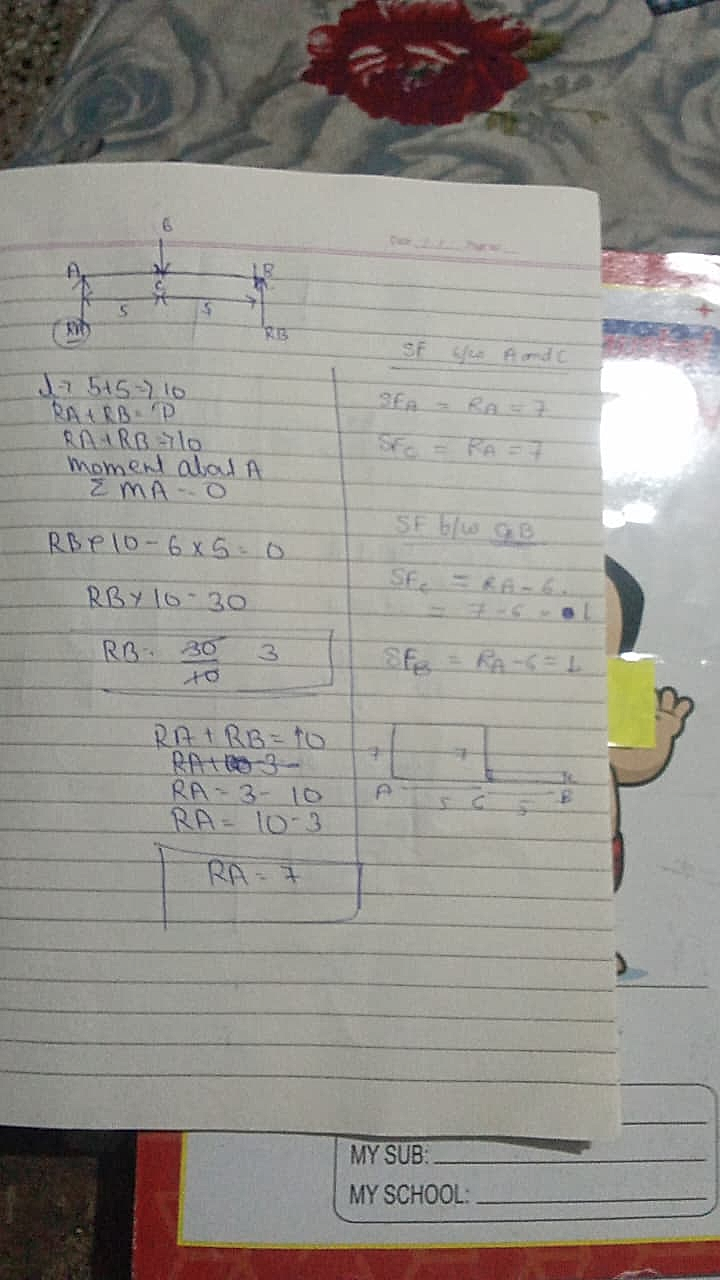 6
A B
C
5 5
RA RB
l → 5+5 → 10
RA + RB = P
RA + RB → 10
moment about A
Σ MA = 0
RB × 10 - 6 × 5 = 0
RB × 10 = 30
RB = 30/10 3
RA + RB = 10
RA + 3 =
RA = 3 - 10
RA = 10 - 3
RA = 7
SF b/w A and C
SFA = RA = 7
SFC = RA = 7
SF b/w CB
SFC = RA - 6
= 7 - 6 = 1
SFB = RA - 6 = 1
7 7
A C B
5 5
MY SUB:
MY SCHOOL: